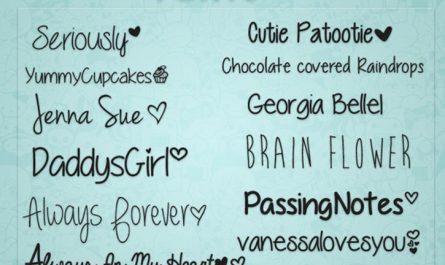 Seriously
YummyCupcakes
Jenna Sue
DaddysGirl
Always Forever
Always In My Heart
Cutie Patootie
Chocolate covered Raindrops
Georgia Bellel
BRAIN FLOWER
PassingNotes
vanessalovesyou